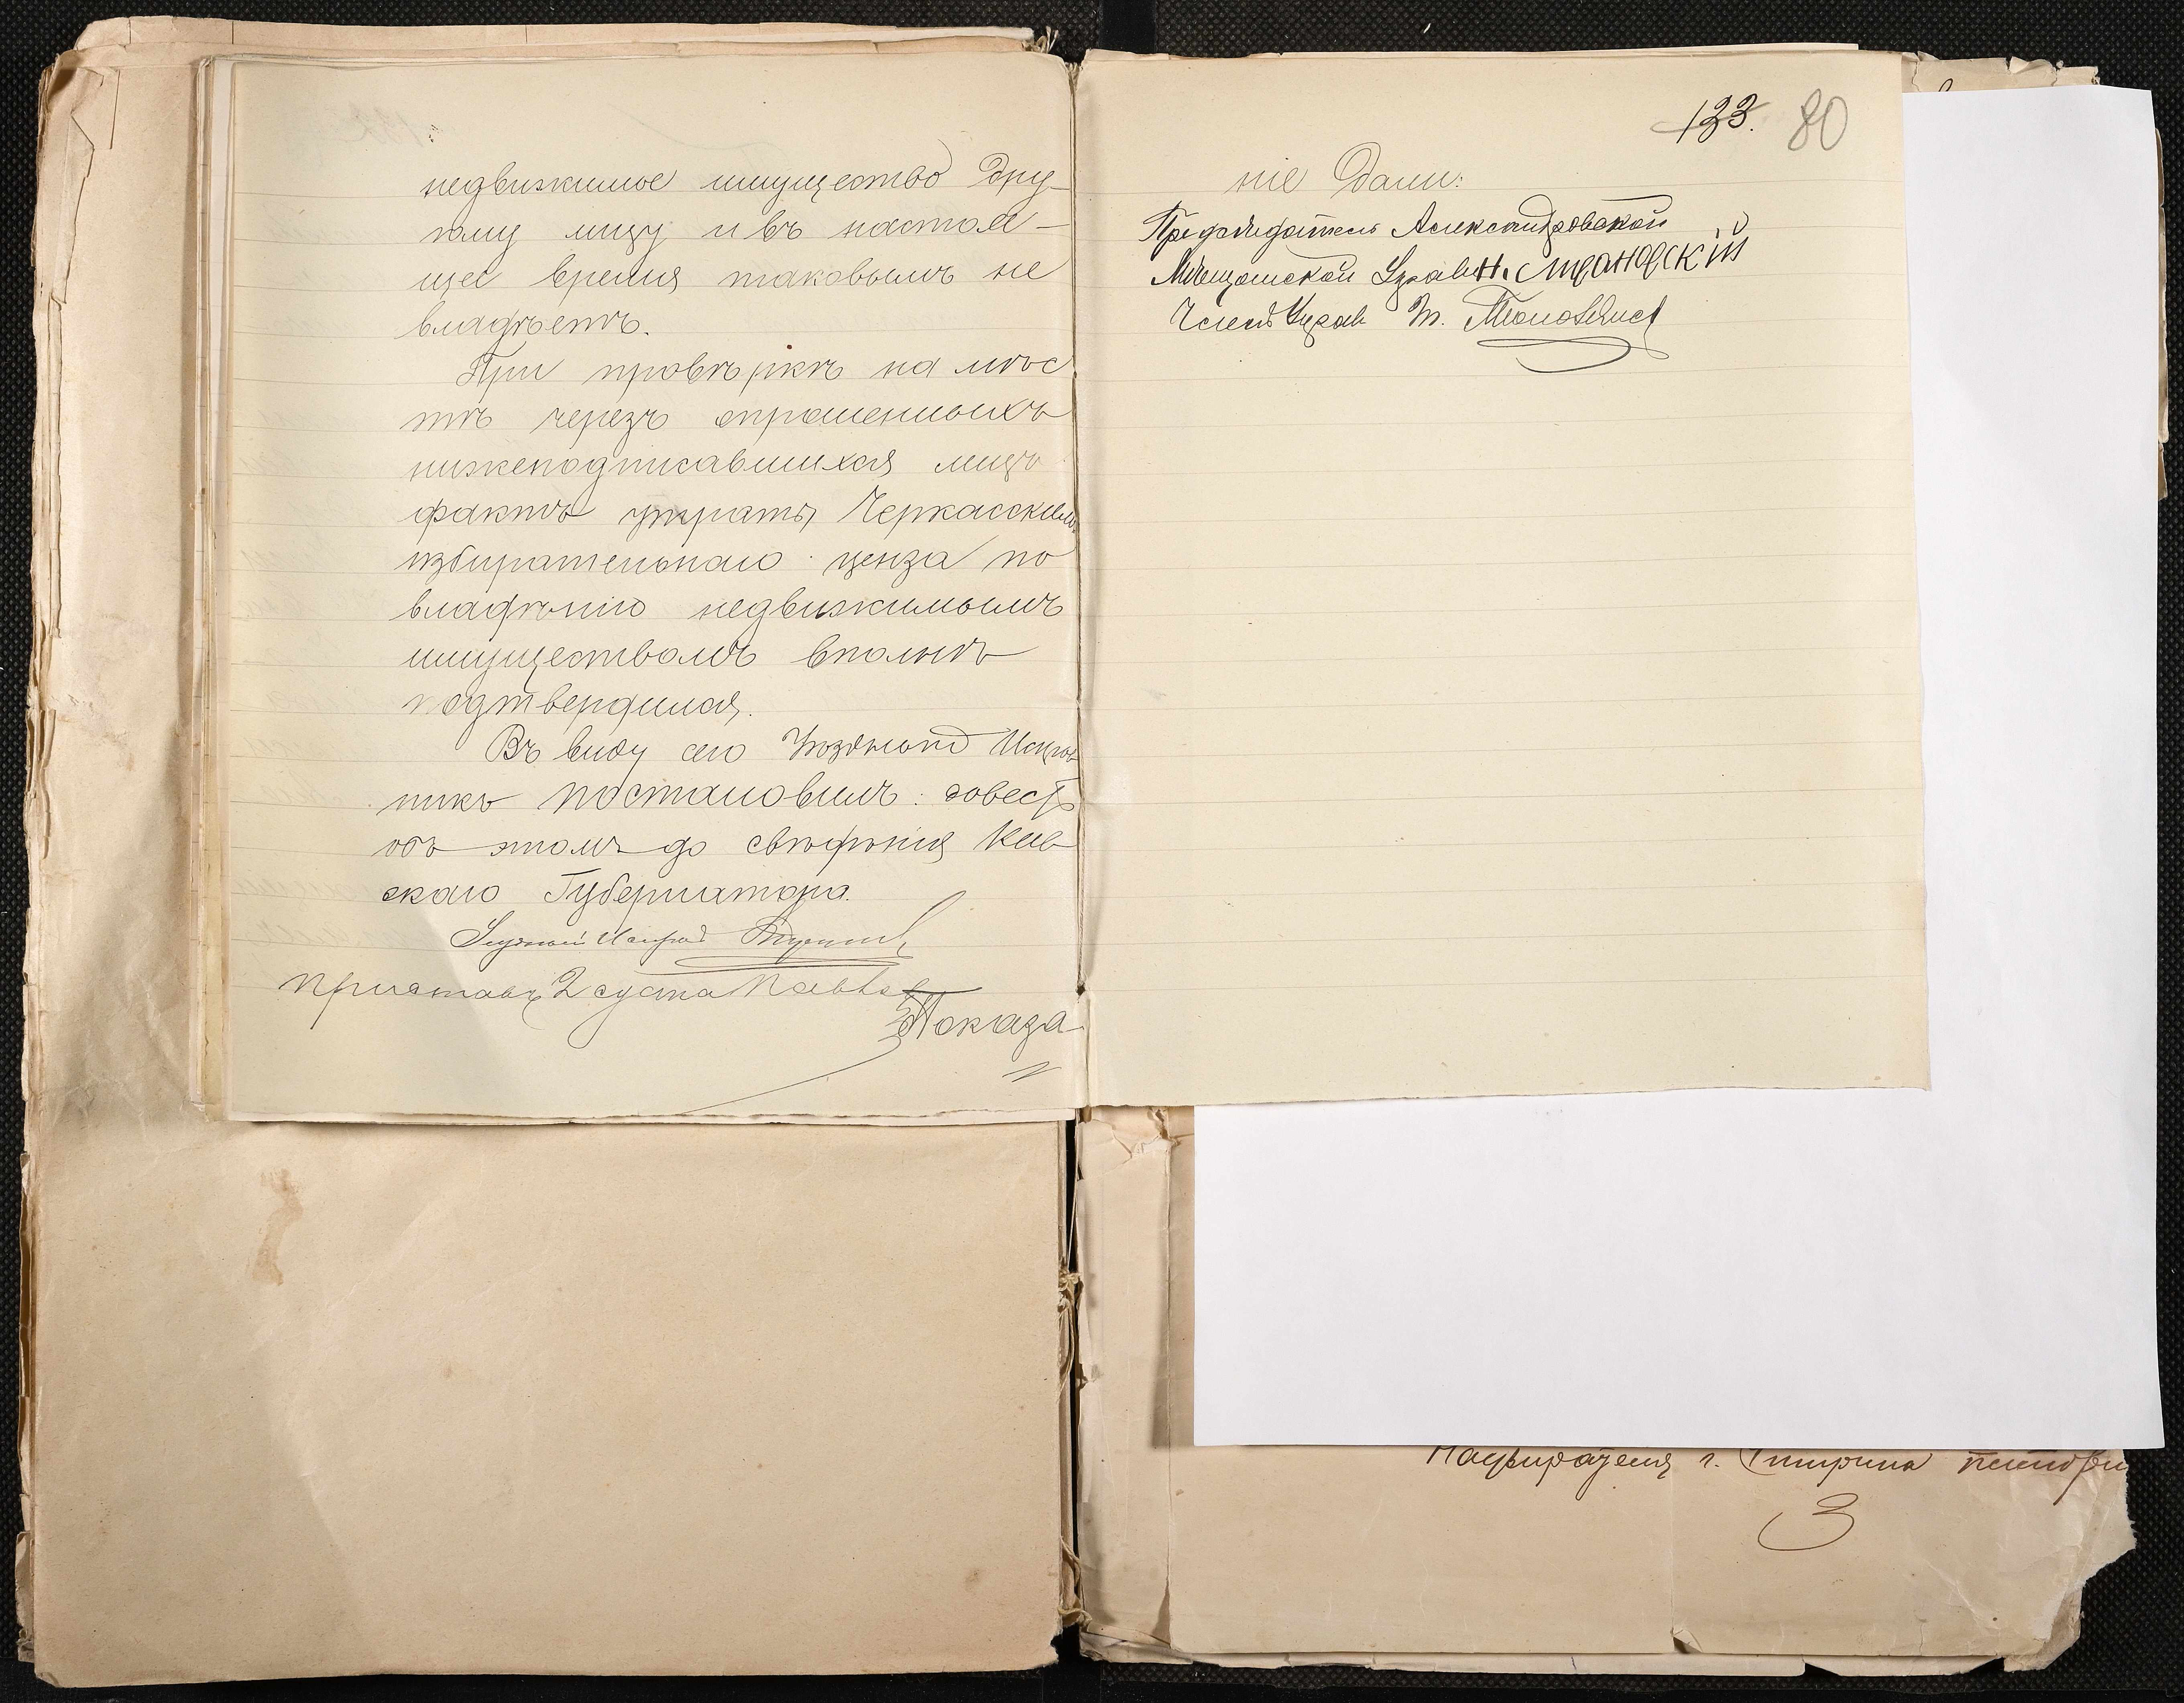 недвижимое имущество дру-
гому лицу и въ настоя-
щее время таковымъ не
владѣетъ.
При провѣркѣ на мѣс
тѣ черезъ опрошенныхъ
нижеподписавшихся лицъ
фактъ утраты Черкасскимъ
избирательнаго ценза по
владѣнію недвижимымъ
имуществомъ вполнѣ
подтвердился.
Въ виду сего Уѣздный Исправ
никъ постановилъ: довести
объ этомъ до свѣдѣнія Кiев
скаго Губернатора.
Уѣздный Исправ
Приставъ 2 стана
Показа
133. 80
ніе дали:
Предсѣдатель Александровской
Мѣщанской Управ Н.
Членъ Управ М.
г. пило
3